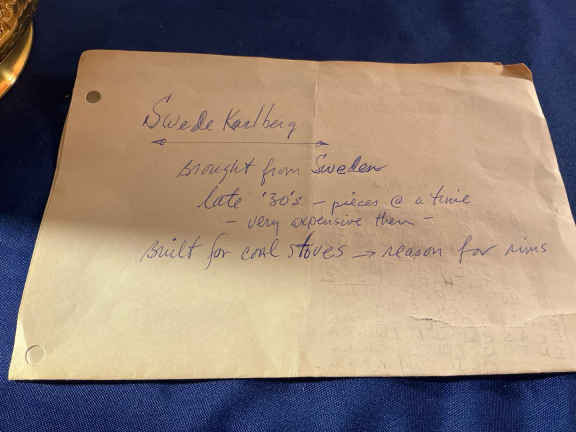 Swede Karlberg
Brought from Sweden
late '30's - pieces @ a time
- very expensive then -
Built for coal stoves → reason for rims